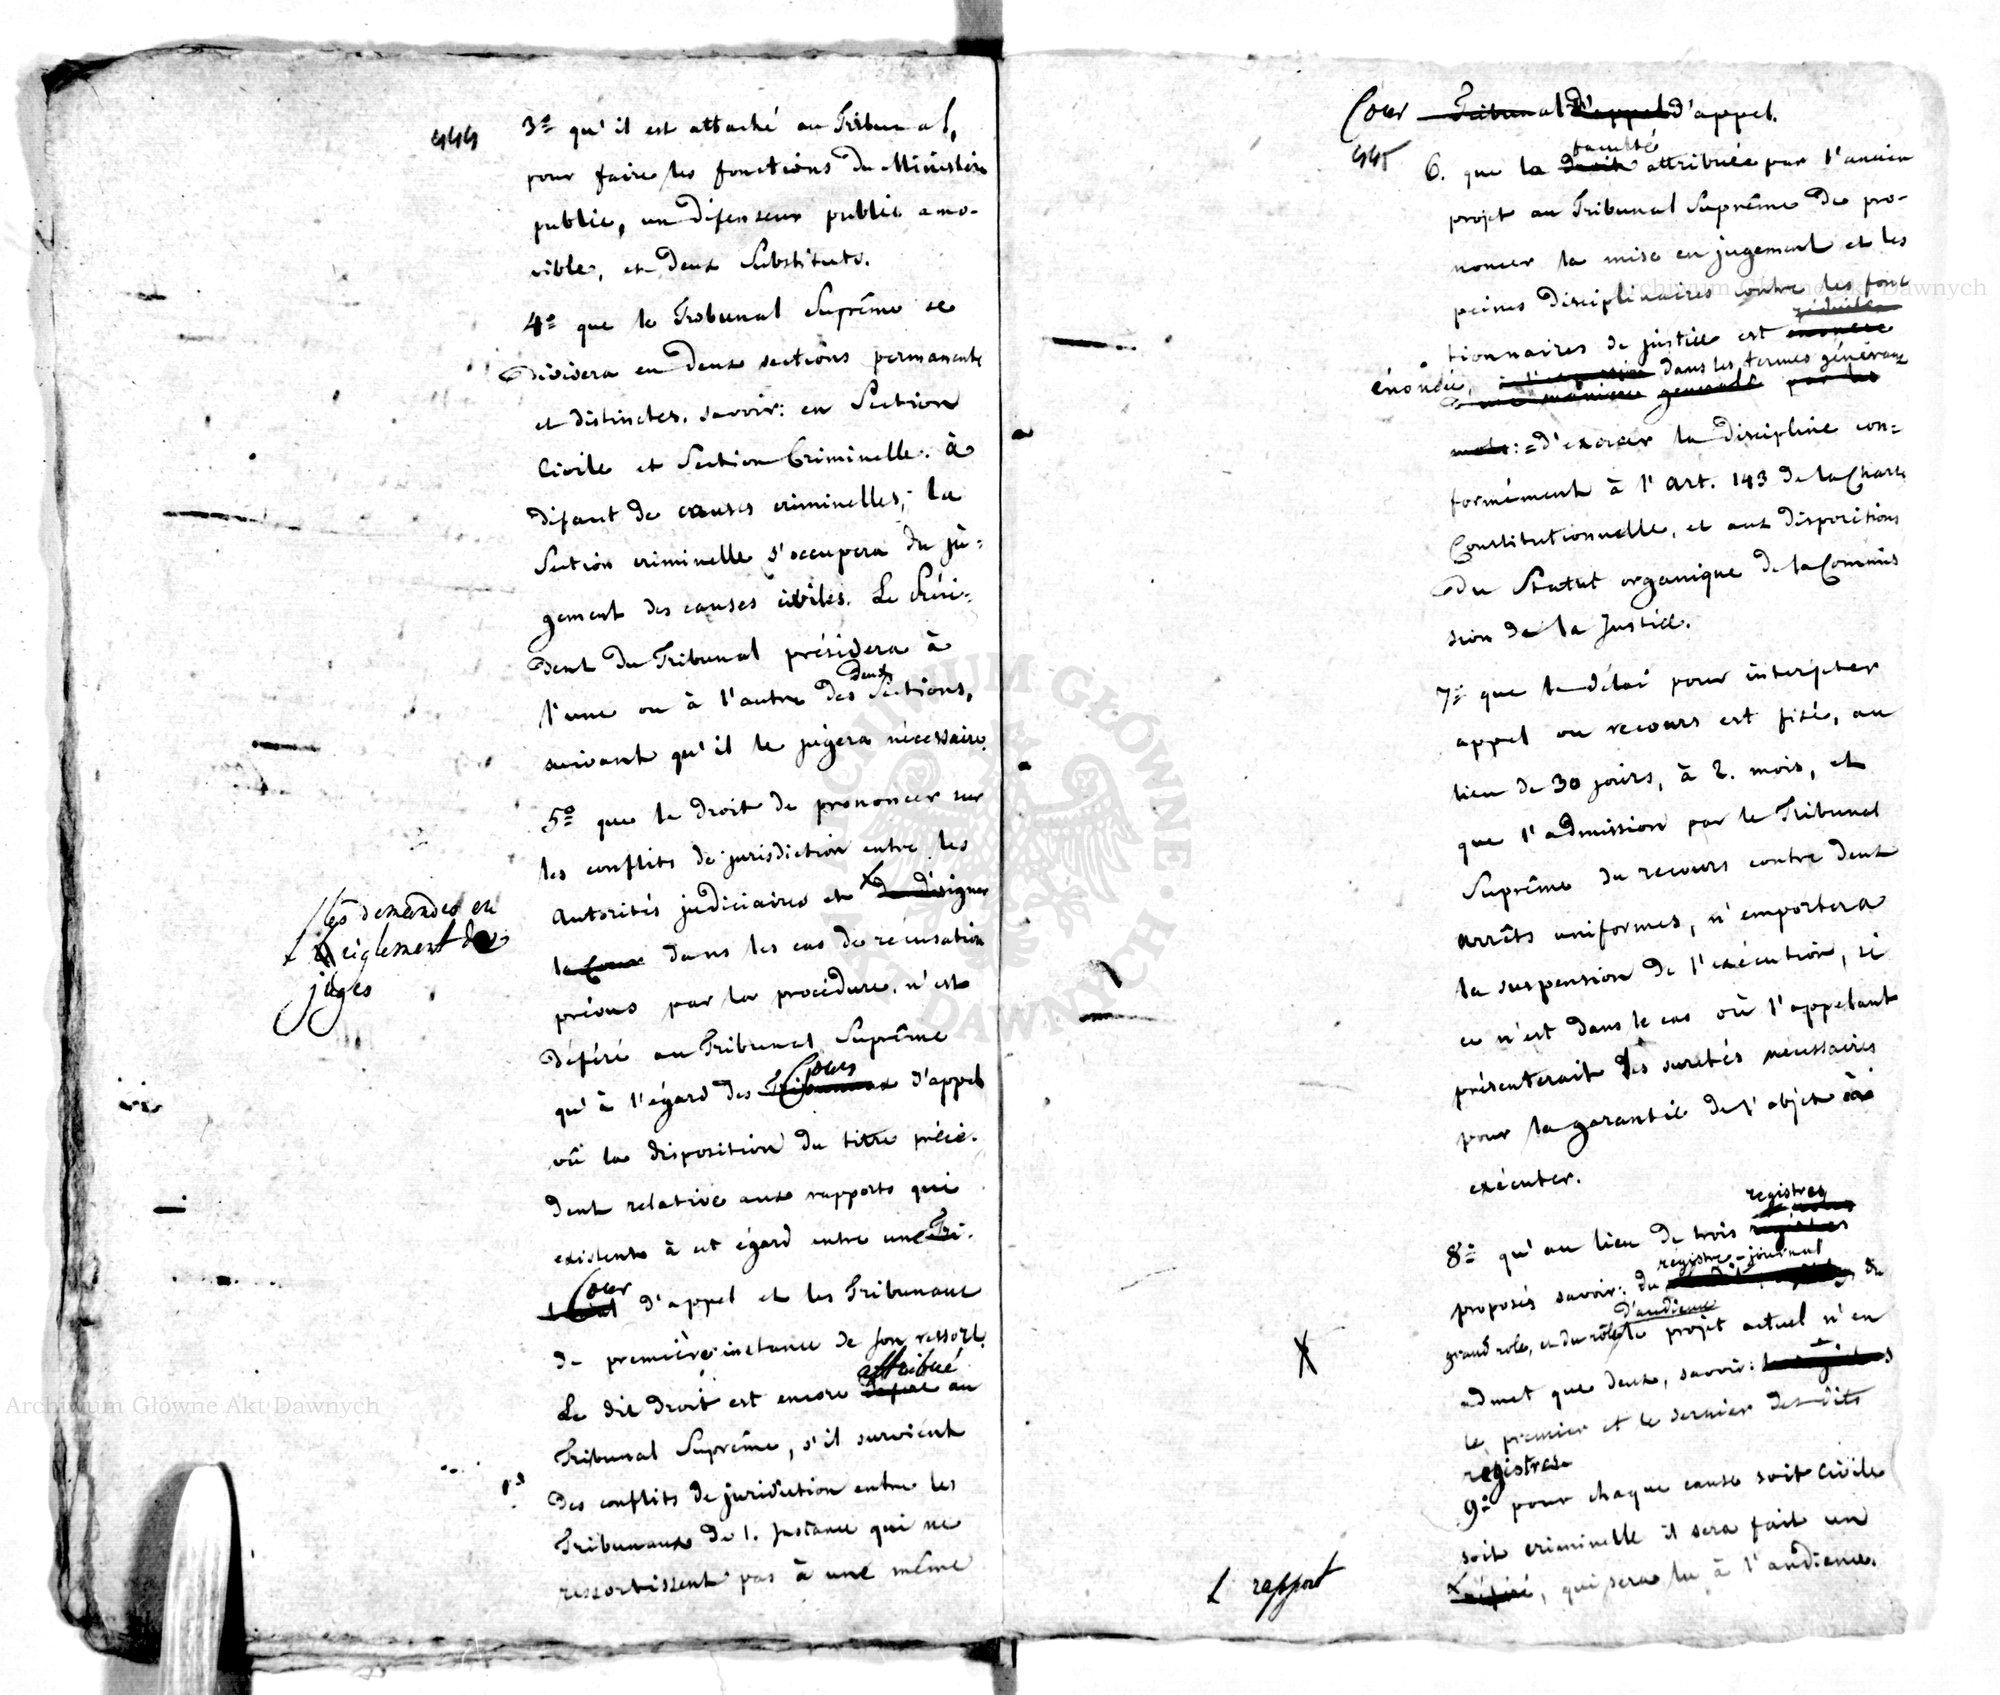 444
3º qu'il est attaché au Tribunal,
pour faire les fonctions du Ministère
public, un défenseur public amo-
vible, et deux Substituts.
4º que le Tribunal Suprême se
divisera en deux sections permanentes
et distinctes, savoir: en Section
Civile et Section Criminelle. à
défaut de causes criminelles, la
Section criminelle s'occupera du ju-
gement des causes civiles. Le Prési-
dent du Tribunal présidera à
l'une ou à l'autre des deux Sections,
suivant qu'il le jugera nécessaire.
5º que le droit de prononcer sur
les conflits de jurisdiction entre les
Autorités judiciaires et de désigner
la Cour dans les cas de récusation
les demandes en
Reiglement des
juges
prévus par la procédure, n'est
déféré au Tribunal Suprême
qu'à l'égard des Tribunaux Cours d'appel
où la disposition du titre précé-
dent relative aux rapports qui
existent à cet égard entre une Tri-
bunal Cour d'appel et les Tribunaux
de première instance de son ressort.
Le dit droit est encore déféré attribué au
Tribunal Suprême, s'il survient
des conflits de juridiction entre les
Tribunaux de 1. Instance qui ne
ressortissent pas à une même
Cour Tribunal d'appel d'appel.
445
6. que la droit faculté attribuée par l'ancien
projet au Tribunal Suprême de pro-
noncer la mise en jugement et les
peines disciplinaires contre les fonc
tionnaires de justice est énoncée réduite
énoncée, à l'expression dans les termes généraux
d'une manière generale par les
mots: =d'exercer la discipline con=
formément à l'art. 143 de la Charte
Constitutionnelle, et aux dispositions
du Statut organique de la Commis
sion de la Justice.
7º que le délai pour interjeter
appel ou recours est fixé, au
lieu de 30 jours, à 2. mois, et
que l'admission par le Tribunal
Suprême du recours contre deux
arrêts uniformes, n'emportera
la suspension de l'exécution, si
ce n'est dans le cas où l'appelant
présenterait les suretés necessaires
pour la garantie de l'objet à
exécuter.
8º qu'au lieu de trois registres
proposés savoir: du régistre-journal du
grand role, et du rôle d'audience le projet actuel n'en
admet que deux, savoir:
le premier et le dernier des dits
registres
9º pour chaque cause soit civile
soit criminelle il sera fait un
référé, qui sera lu à l'audience.
L rapport
Archiwum Główne Akt Dawnych
Archiwum Główne Akt Dawnych
ARCHIWUM GŁÓWNE AKT DAWNYCH